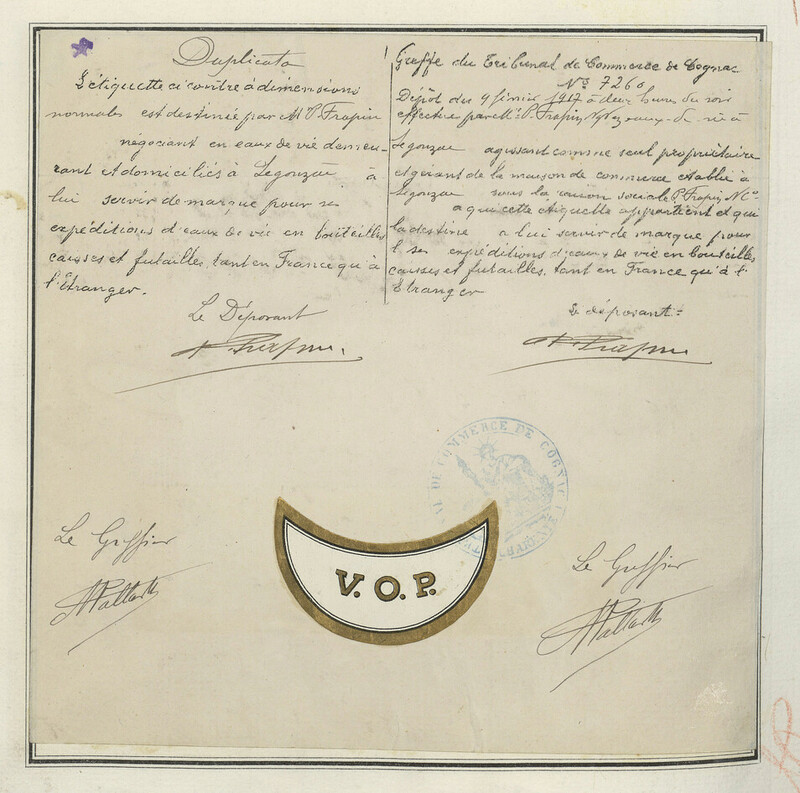 Duplicata
L'étiquette ci contre à dimensions
normales est destinée par M P. Frapin
négociant en eaux de vie demeu-
rant et domiciliés à Segonzac à
lui servir de marque pour ses
expéditions d'eaux de vie en bouteilles
caisses et futailles, tant en France qu'à
l'Étranger.
Le Déposant
P. Frapin
Greffe du Tribunal de Commerce de Cognac
No 7260
Dépôt du 9 février 1917 à deux heures du soir
effectué par M. P. Frapin, nég. eaux-de-vie à
Segonzac agissant comme seul propriétaire
et gérant de la maison de commerce établie à
Segonzac sous la raison sociale P. Frapin & Co
a qui cette étiquette appartient et qui
la destine a lui servir de marque pour
ses expéditions d'eaux de vie en bouteilles
caisses et futailles, tant en France qu'à l'
Étranger
Le déposant =
P. Frapin
DE COMMERCE DE COGNAC
CHARENTE
Le Greffier
V.O.P.
Le Greffier